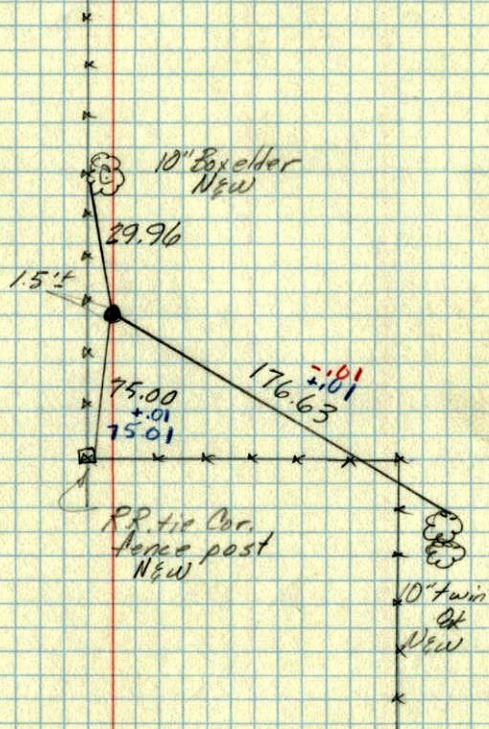 10" Boxelder
NEW
29.96
1.5'±
-.01
+.01
176.63
75.00
+.01
75.01
R.R. tie Cor.
fence post
NEW
10" twin
NEW